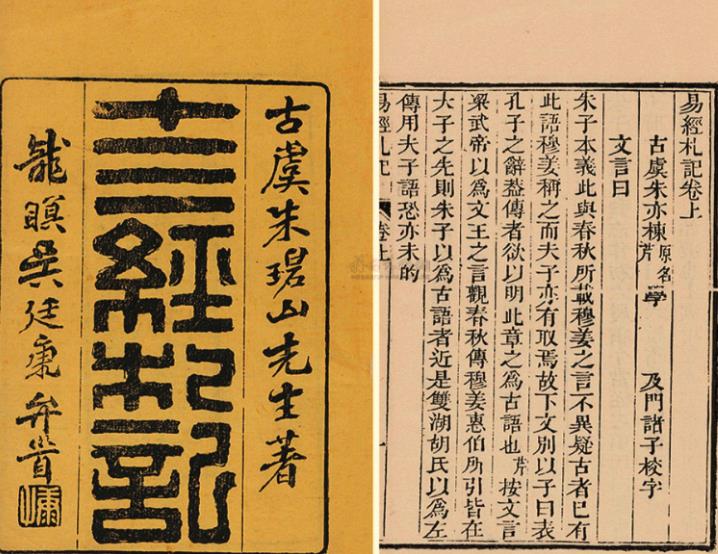 古虞朱碧山先生著
十三經札記
龍瞑吳廷康弁首
易經札記卷上
古虞朱亦棟原名芹學 及門諸子校字
文言曰
朱子本義此與春秋所載穆姜之言不異疑古者已有
此語穆姜稱之而夫子亦有取焉故下文別以子曰表
孔子之辭葢傳者欲以明此章之爲古語也芹按文言
梁武帝以爲文王之言觀春秋傳穆姜惠伯所引皆在
夫子之先則朱子以爲古語者近是雙湖胡氏以爲左
傳用夫子語恐亦未的
易經札記 卷上 一